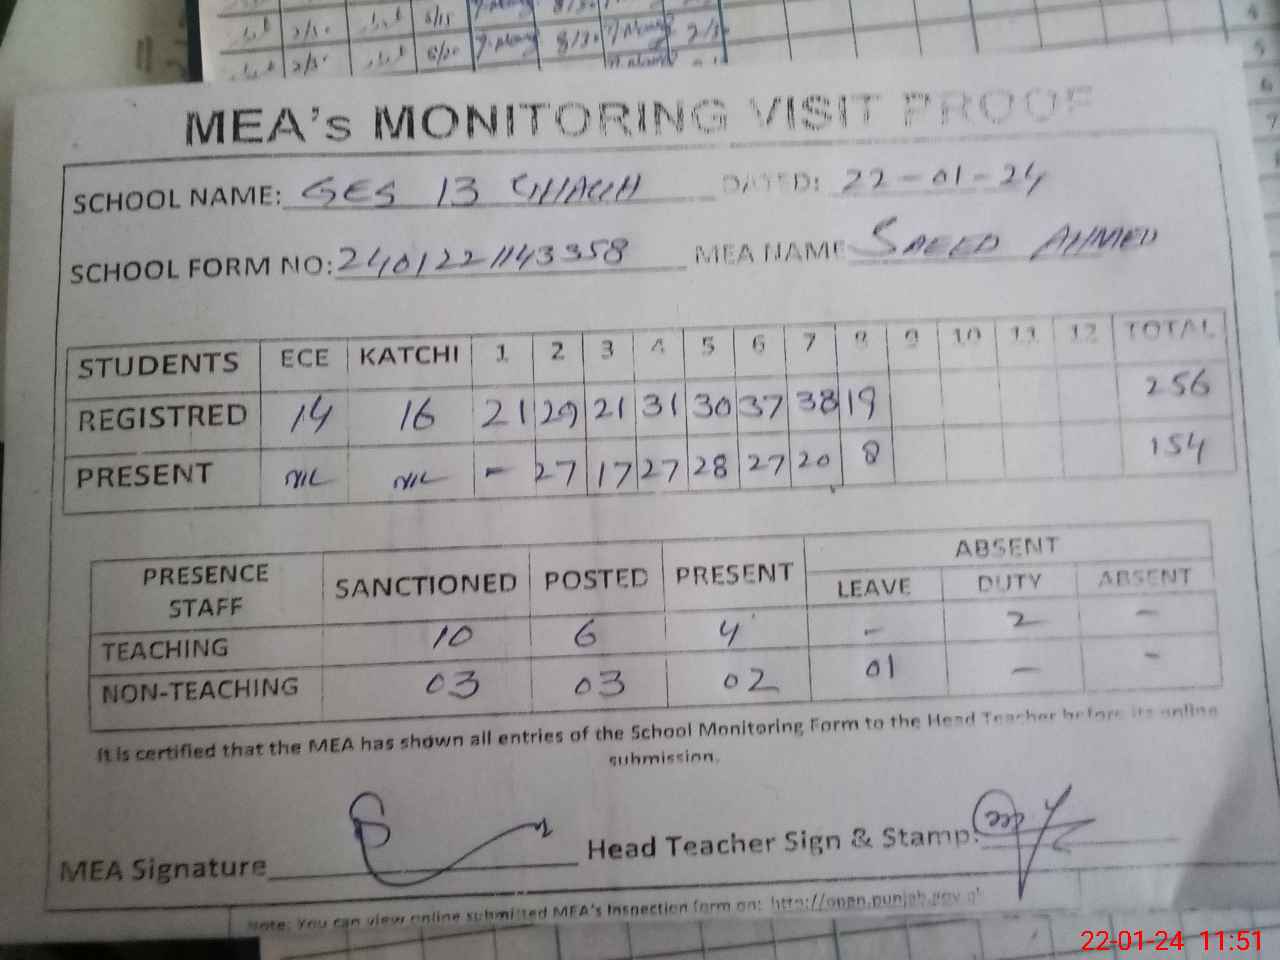 MEA's MONITORING VISIT PROOF
SCHOOL NAME: GES 13 DATED: 22-01-24
SCHOOL FORM NO: 2401221143358 MEA NAME SAEED AHMED
STUDENTS ECE KATCHI 1 2 3 4 5 6 7 8 9 10 11 12 TOTAL
REGISTRED 14 16 21 29 21 31 30 37 38 19 256
PRESENT NIL NIL - 27 17 27 28 27 20 8 154
PRESENCE STAFF SANCTIONED POSTED PRESENT ABSENT
LEAVE DUTY ABSENT
TEACHING 10 6 4 - 2 -
NON-TEACHING 03 03 02 01 - -
It is certified that the MEA has shown all entries of the School Monitoring Form to the Head Teacher before its online
submission.
MEA Signature Head Teacher Sign & Stamp:
Note: You can view online submitted MEA's Inspection form on: http://open.punjab.gov.
22-01-24 11:51